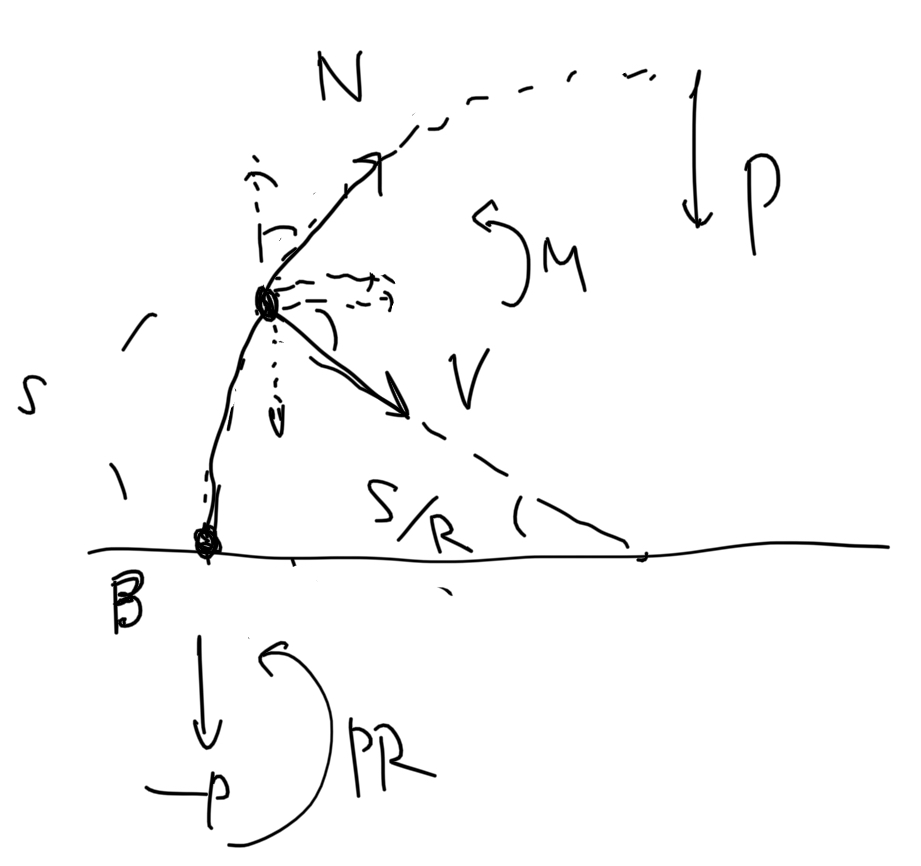 N
P
M
S
V
S/R
B
-P
PR